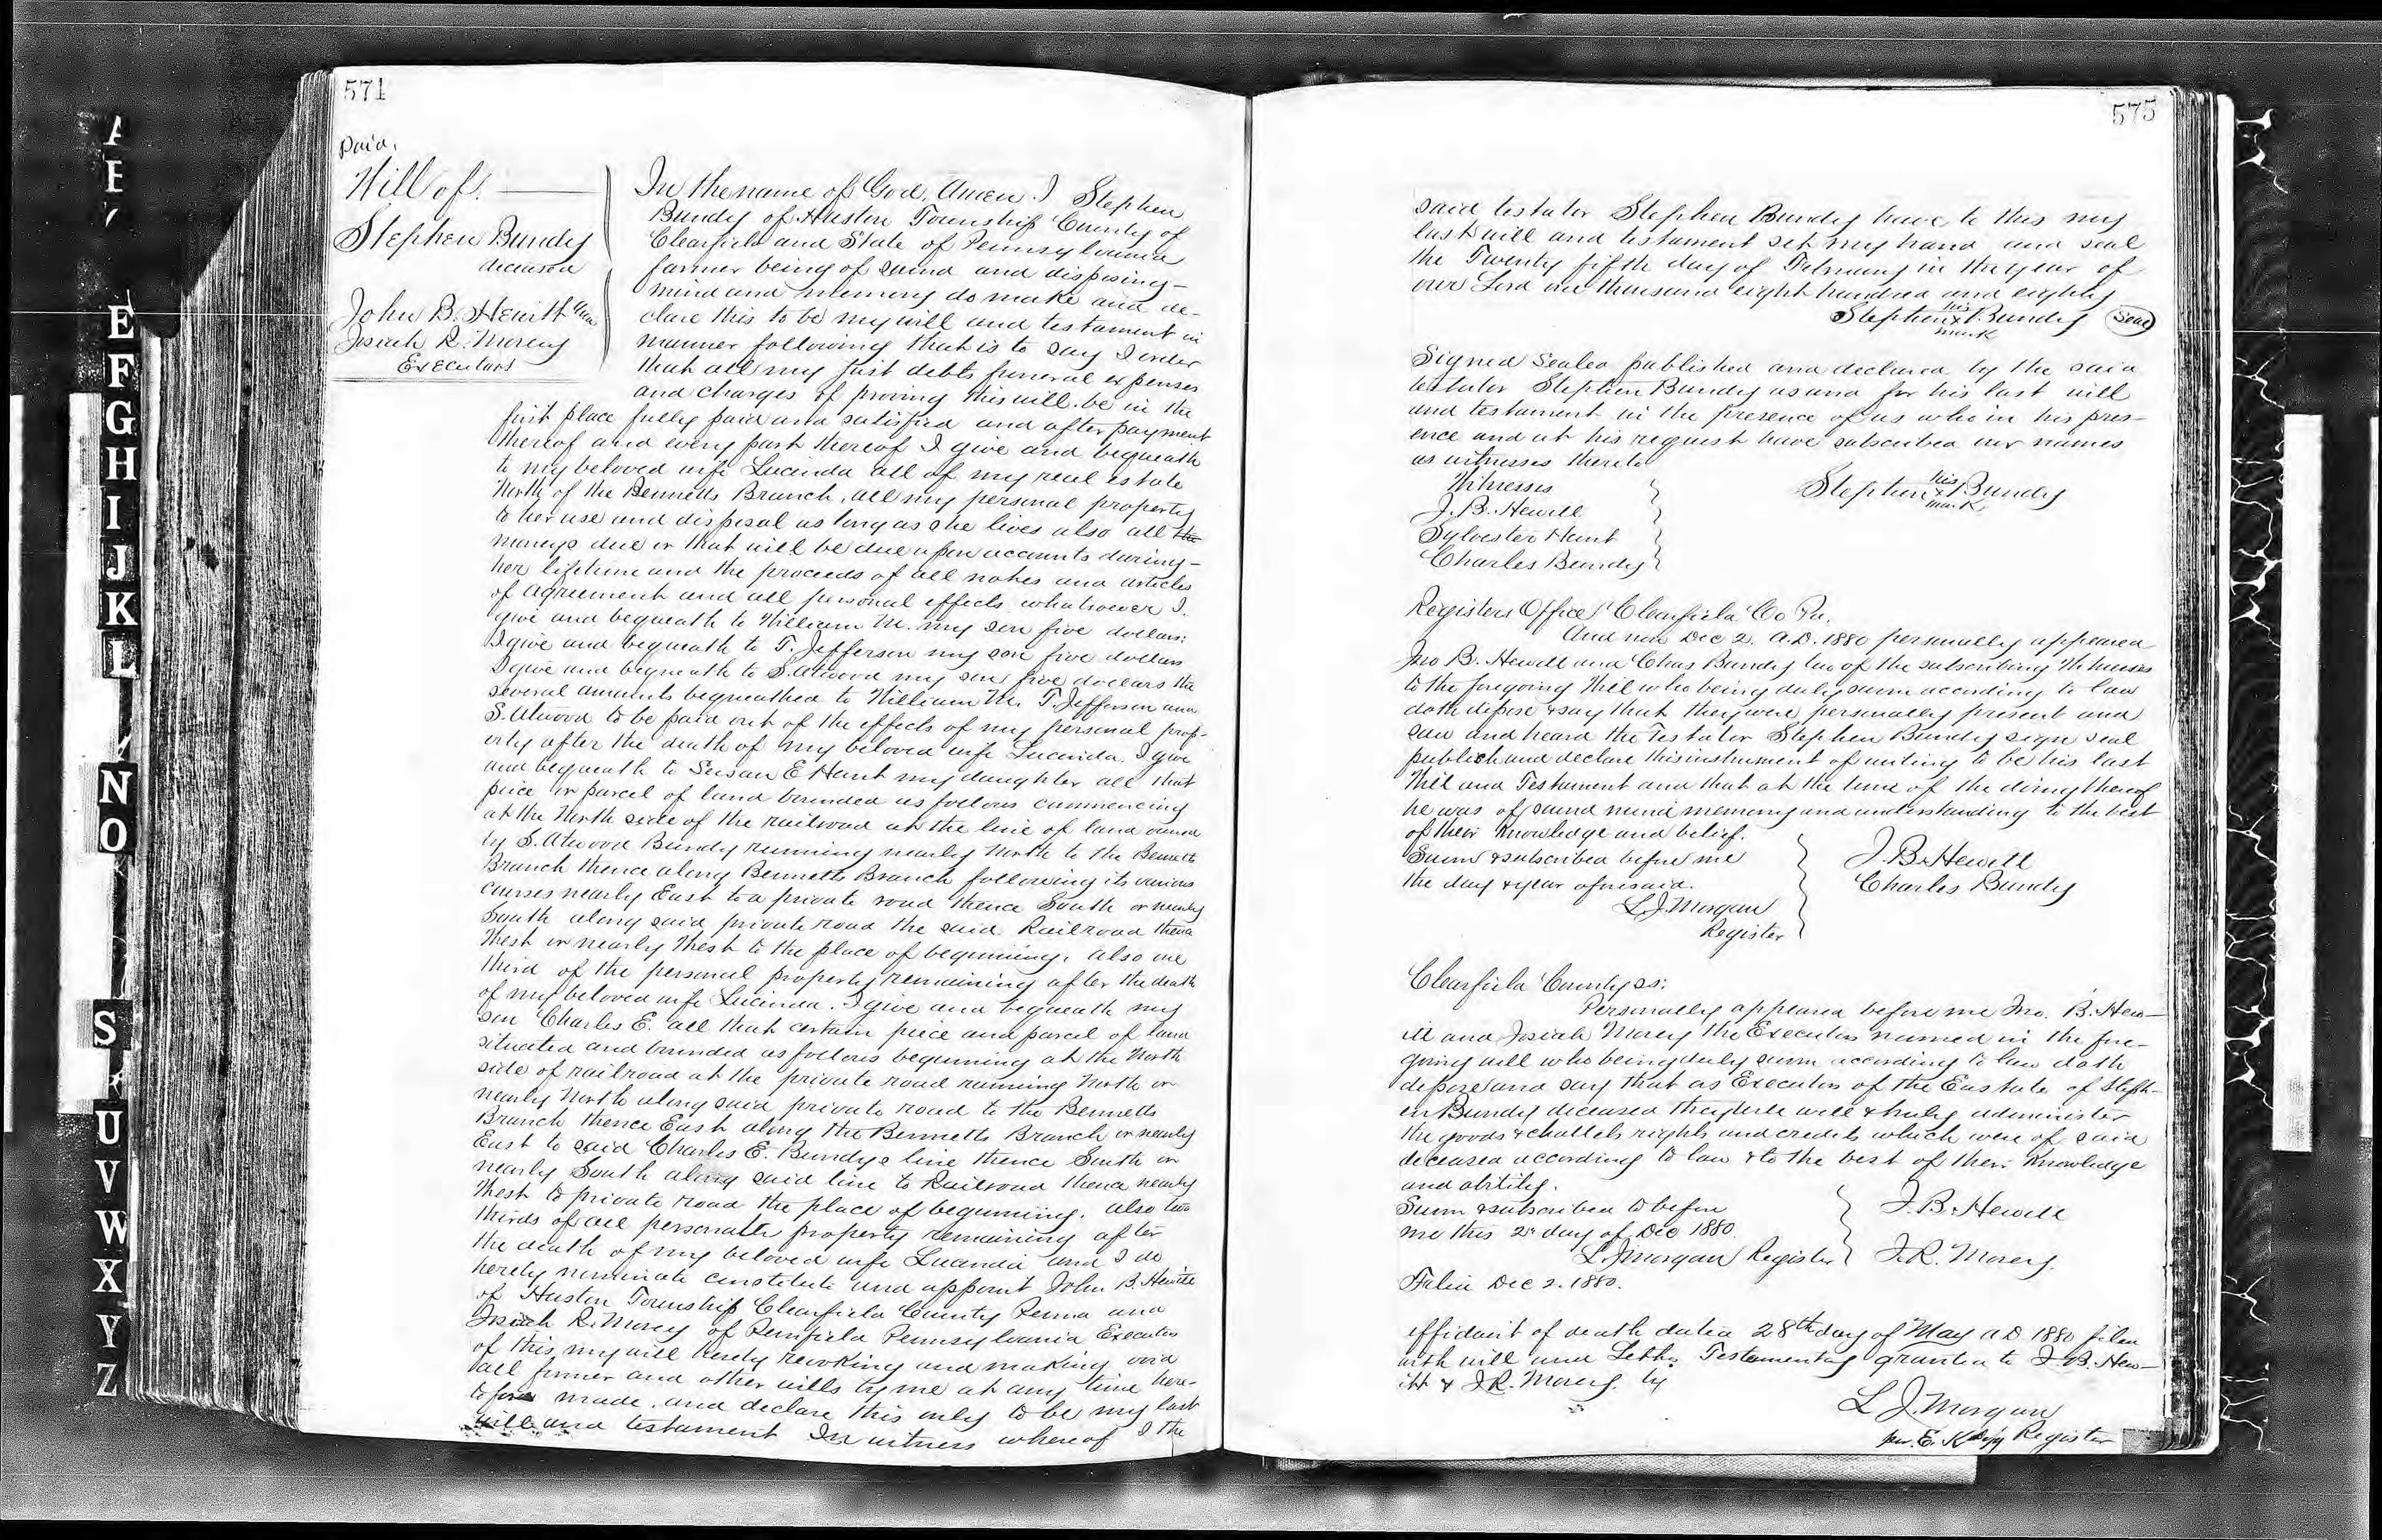 571
Paid.
Will of.
Stephen Bundy
deceased
John B. Hewitt and
Josiah R. Morey
Executors
In the name of God, Amen I Stephen
Bundy of Huston Township County of
Clearfield and State of Pennsylvania
farmer being of sound and disposing
mind and memory do make and de-
clare this to be my will and testament in
manner following that is to say I order
that all my just debts funeral expenses
and charges of proving this will be in the
first place fully paid and satisfied and after payment
thereof and every part thereof I give and bequeath
to my beloved wife Lucinda all of my real estate
North of the Bennetts Branch, all my personal property
to her use and disposal as long as she lives also all the
moneys due or that will be due upon accounts during
her lifetime and the proceeds of all notes and articles
of agreement and all personal effects whatsoever I
give and bequeath to William M. my son five dollars.
I give and bequeath to T. Jefferson my son five dollars
I give and bequeath to S. Atwood my son five dollars the
several amounts bequeathed to William M. T. Jefferson and
S. Atwood to be paid out of the effects of my personal prop-
erty after the death of my beloved wife Lucinda. I give
and bequeath to Susan E Hunt my daughter all that
piece or parcel of land bounded as follows commencing
at the North side of the railroad at the line of land owned
by S. Atwood Bundy running nearly North to the Bennetts
Branch thence along Bennetts Branch following its various
courses nearly East to a private road thence South or nearly
South along said private road the said Railroad thence
West or nearly West to the place of beginning. Also one
third of the personal property remaining after the death
of my beloved wife Lucinda. I give and bequeath my
son Charles E. all that certain piece and parcel of land
situated and bounded as follows beginning at the North
side of railroad at the private road running North or
nearly North along said private road to the Bennetts
Branch thence East along the Bennetts Branch or nearly
East to said Charles E. Bundys line thence South or
nearly South along said line to Railroad thence nearly
West to private road the place of beginning. Also two
thirds of all personalle property remaining after
the death of my beloved wife Lucinda and I do
hereby nominate constitute and appoint John B. Hewitt
of Huston Township Clearfield County Penna and
Josiah R. Morey of Penfield Pennsylvania Executors
of this my will hereby revoking and making void
all former and other wills by me at any time here-
tofore made, and declare this only to be my last
will and testament In witness whereof I the
575
said testator Stephen Bundy have to this my
last will and testament set my hand and seal
the Twenty fifth day of February in the year of
our Lord one thousand eight hundred and eighty
his
Stephen x Bundy Seal
mark
Signed Sealed published and declared by the said
testator Stephen Bundy as and for his last will
and testament in the presence of us who in his pres-
ence and at his request have subscribed our names
as witnesses thereto
Witnesses
J. B. Hewitt
Sylvester Hunt
Charles Bundy
his
Stephen x Bundy
mark
Registers Office Clearfield Co Pa.
And now Dec 2. A.D. 1880 personally appeared
Jno B. Hewitt and Chas Bundy two of the subscribing Witnesses
to the foregoing Will who being duly sworn according to law
doth depose & say that they were personally present and
saw and heard the Testator Stephen Bundy sign seal
publish and declare this instrument of writing to be his last
Will and Testament and that at the time of the doing thereof
he was of sound mind memory and understanding to the best
of their knowledge and belief.
Sworn & subscribed before me
the day & year aforesaid.
L. J. Morgan
Register
J. B. Hewitt
Charles Bundy
Clearfield County ss:
Personally appeared before me Jno. B. Hew-
itt and Josiah Morey the Executors named in the fore-
going will who being duly sworn according to law doth
depose and say that as Executors of the Eastate of Steph-
en Bundy deceased they will well & truly administer
the goods & chattels rights and credits which were of said
deceased according to law & to the best of their knowledge
and ability.
Sworn & subscribed to before
me this 2d day of Dec 1880.
L. J. Morgan Register
J. B. Hewitt
J. R. Morey.
Filed Dec 2. 1880.
Affidavit of death dated 28th day of May A D 1880 filed
with will and Letters Testamentary granted to J. B. Hew-
itt & J. R. Morey. by
L J. Morgan
Register
E
F
G
H
I
J
K
L
N
O
S
U
V
W
X
Y
Z